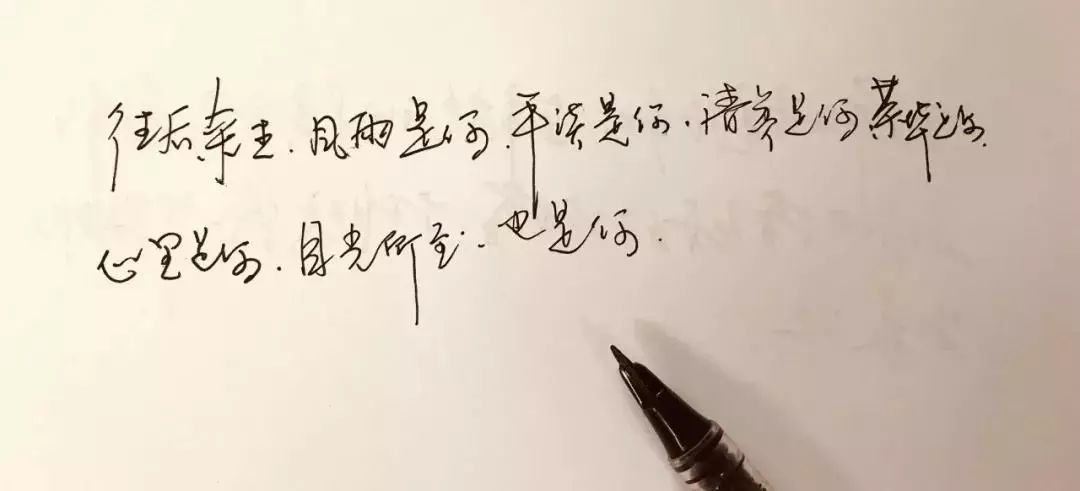 往后余生.风雨是你.平淡是你.清贫是你荣华是你.
心里是你.目光所至.也是你.